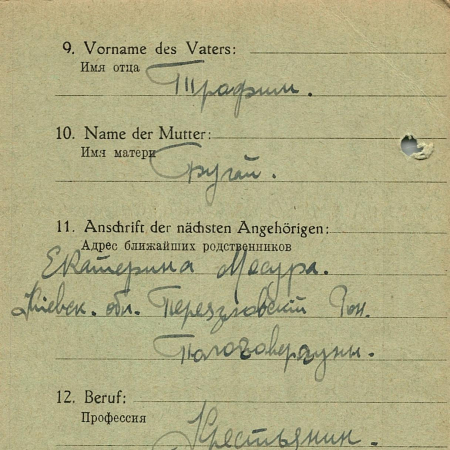 9. Vorname des Vaters:
Имя отца
Трафим.
10. Name der Mutter:
Имя матери
Бугай.
11. Anschrift der nächsten Angehörigen:
Адрес ближайших родственников
Екатерина Мосура.
Киевск. обл. Переяславский
12. Beruf:
Профессия
Крестьянин.